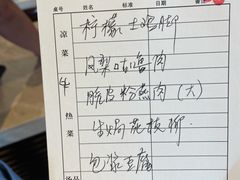 桌号 标准 日期
柠檬土鸡脚
凉菜
凤梨咕噜肉
脆皮粉蒸肉（大）
热菜
生焗花枝
包浆豆腐